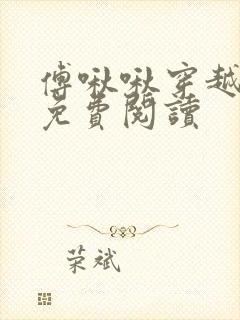 傅啾啾穿越
免費閱讀
荣斌